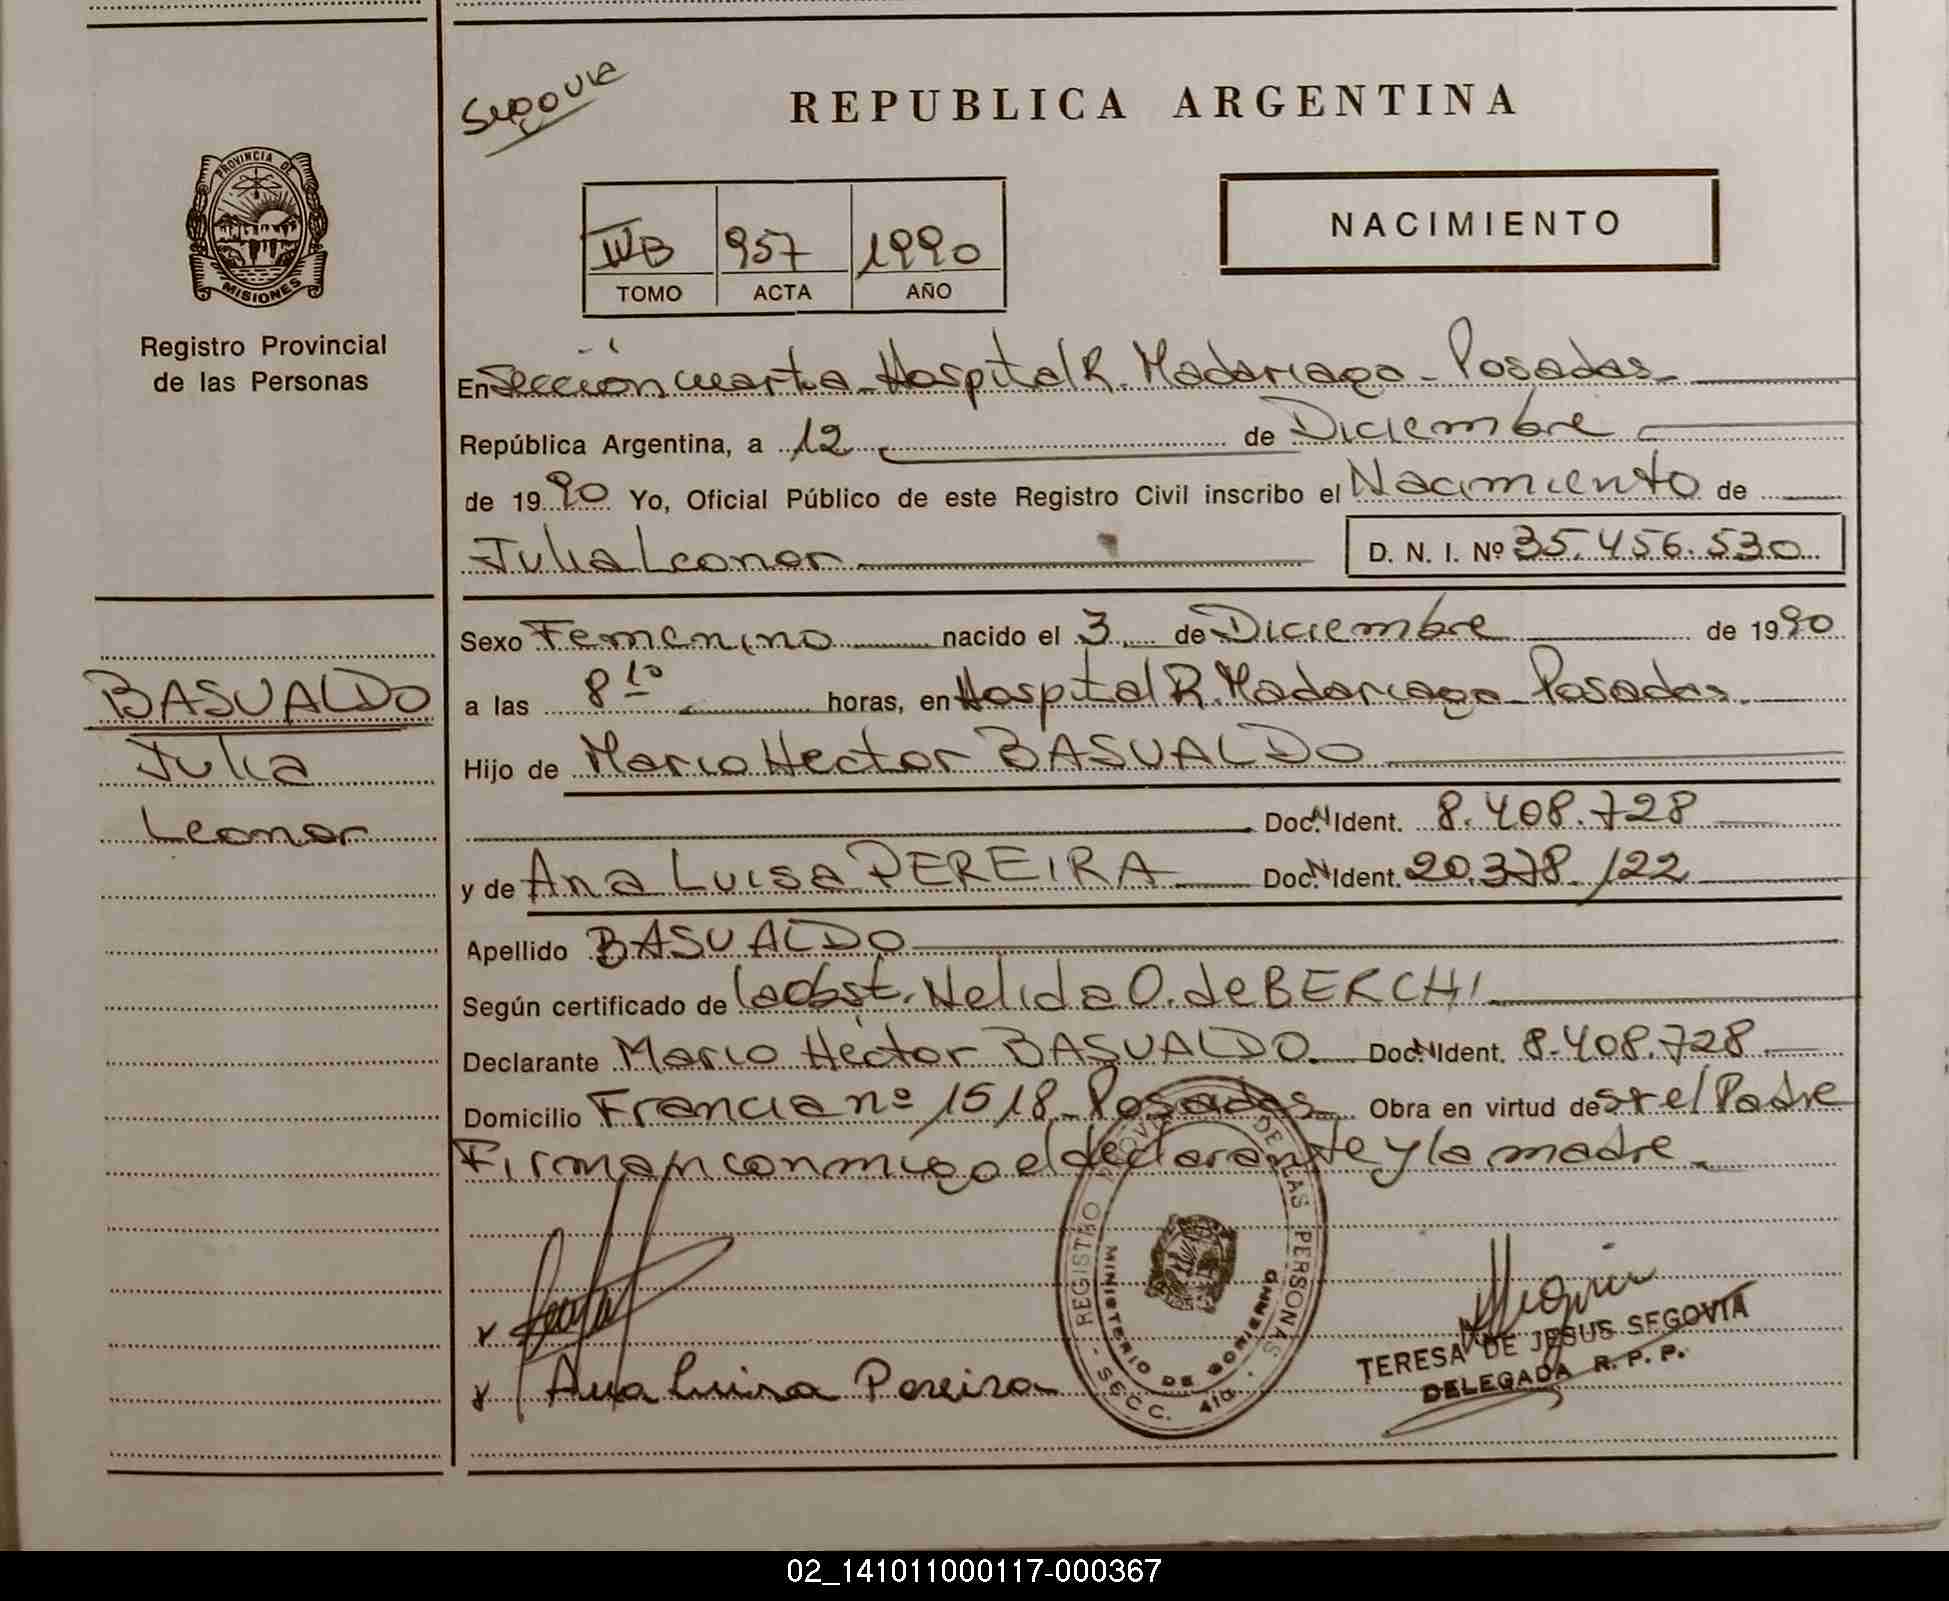 Segovia
REPUBLICA ARGENTINA
PROVINCIA DE
MISIONES
Registro Provincial
de las Personas
IVB 957 1990
TOMO ACTA AÑO
NACIMIENTO
En Sección cuarta Hospital R. Madariaga - Posadas
República Argentina, a 12 de Diciembre
de 1990 Yo, Oficial Público de este Registro Civil inscribo el Nacimiento de
Julia Leonor D. N. I. Nº 35.456.530
Sexo Femenino nacido el 3 de Diciembre de 1990
BASUALDO
Julia
Leonor
a las 8 10 horas, en Hospital R. Madariaga - Posadas
Hijo de Mario Hector BASUALDO
Doc. N Ident. 8.408.728
y de Ana Luisa PEREIRA Doc. N Ident. 20.378./22
Apellido BASUALDO
Según certificado de la obst. Nelida O. de BERCHI
Declarante Mario Héctor BASUALDO Doc. N Ident. 8.408.728
Domicilio Francia nº 1518 - Posadas Obra en virtud de sr el Padre
Firman conmigo el declarante y la madre
REGISTRO PROV. DE LAS PERSONAS - SECC. 4ta -
MINISTERIO DE GOBIERNO
Ana Luisa Pereira
TERESA DE JESUS SEGOVIA
DELEGADA R. P. P.
02_141011000117-000367